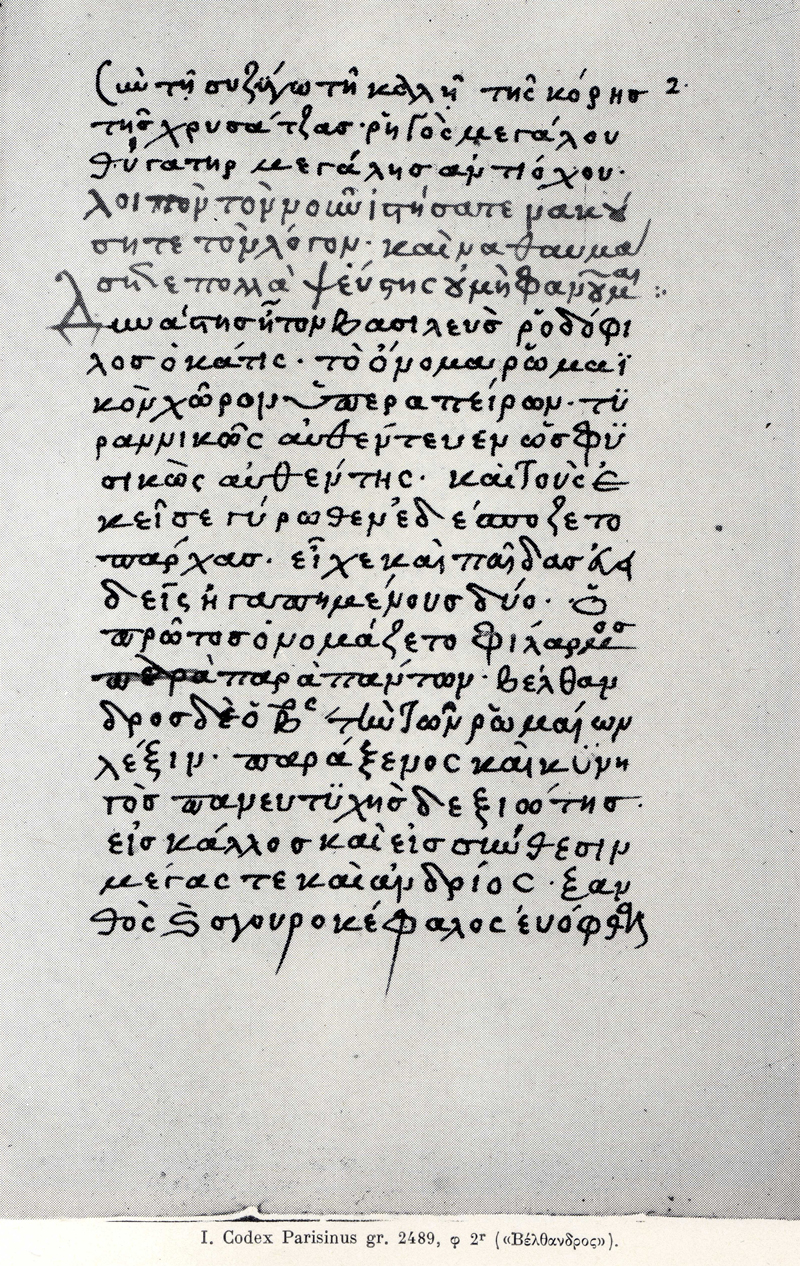 σὺν τῇ συζύγω τῆ καλλῆ τῆς κόρης 2
τῆς χρυσάτζας ῥηγὸς μεγάλου
θύγατηρ μεγάλης ἀντιόχου.
λοιπὸν τὸν νοῦν ἱστήσατε νακού
σητε τὸν λόγον· καὶ να θαυμά
σηδε πολλὰ ψεύστης οὐ μὴ φανοῦμαι :.
Δυνάστης ἦτον βασιλεὺσ ῥοδόφι
λοσ ὁ κάτις· τὸ ὄνομαν ῥωμαϊ
κὸν χῶρον ὑπεραπείρων· τϋ
ραννικῶς αὐθέντευεν ὡσ φϋ
σικῶς αὐθέντης· καὶ τοὺς ἐ
κεῖσε γύρωθεν ἐδεσποζετο
παρχασ· εἶχε καὶ παῖδασ
δεῖς ἠγαπημένους δύο· ὁ
πρῶτοσ ὀνομάζετο φιλαρμος
παρὰ πάντων· βέλθαν
δροσ δὲ ὁ βς τὴν τῶν ῥωμαίων
λέξιν· παράξενος καὶ κϋνη
γὸσ παν εὐτϋχὴσ δεξιώτησ·
εἰσ κάλλοσ καὶ εἰσ σύνθεσιν
μέγας τε καὶ ἀνδρίος· ξαν
θὸς σγουροκέφαλος εὐόφθαλμος
I. Codex Parisinus gr. 2489, φ 2r («Βέλθανδρος»).